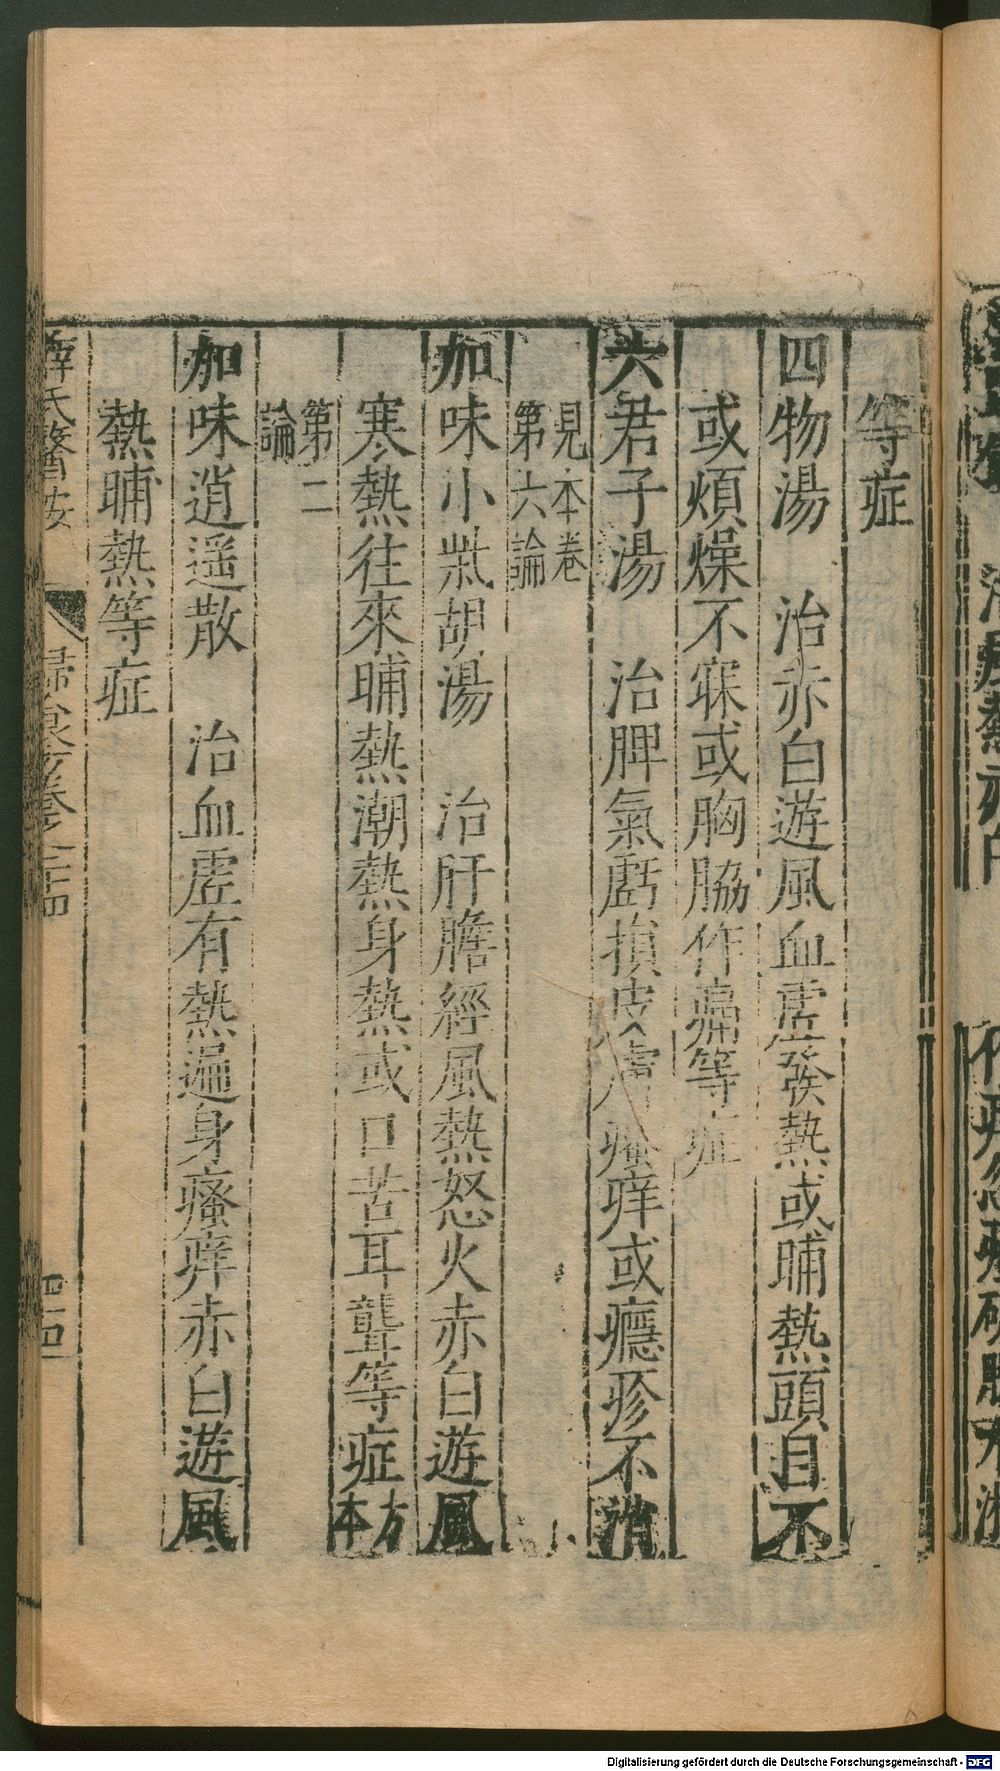 等症
四物湯　治赤白遊風血虛發熱或晡熱頭目不
或煩燥不寐或胸脇作痛等症
六君子湯　治脾氣虧損皮膚瘙痒或癮疹不消
見本卷
第六論
加味小柴胡湯　治肝膽經風熱怒火赤白遊風
寒熱往來晡熱潮熱身熱或口苦耳聾等症方本
第二
論
加味逍遥散　治血虛有熱遍身瘙痒赤白遊風
熱晡熱等症
薛氏醫按
Digitalisierung gefördert durch die Deutsche Forschungsgemeinschaft - DFG